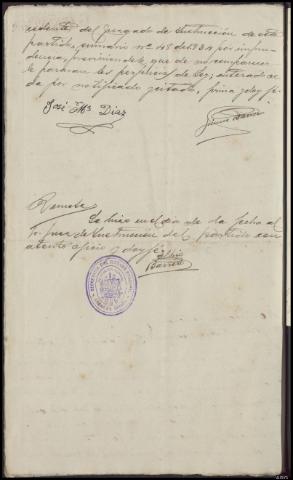 cedente del Juzgado de Instrucción de este
partido, sumario nº 48 de 1934 por impru-
dencia, previniendole que de no comparecer
le pararan los perjuicios de Ley, enterado se
da por notificado y citado, firma y doy fé.
José Mª Diaz
Remote
Se hizo en el dia de la fecha al
Sr. Juez de Instrucción del partido con
atento oficio y doy fé